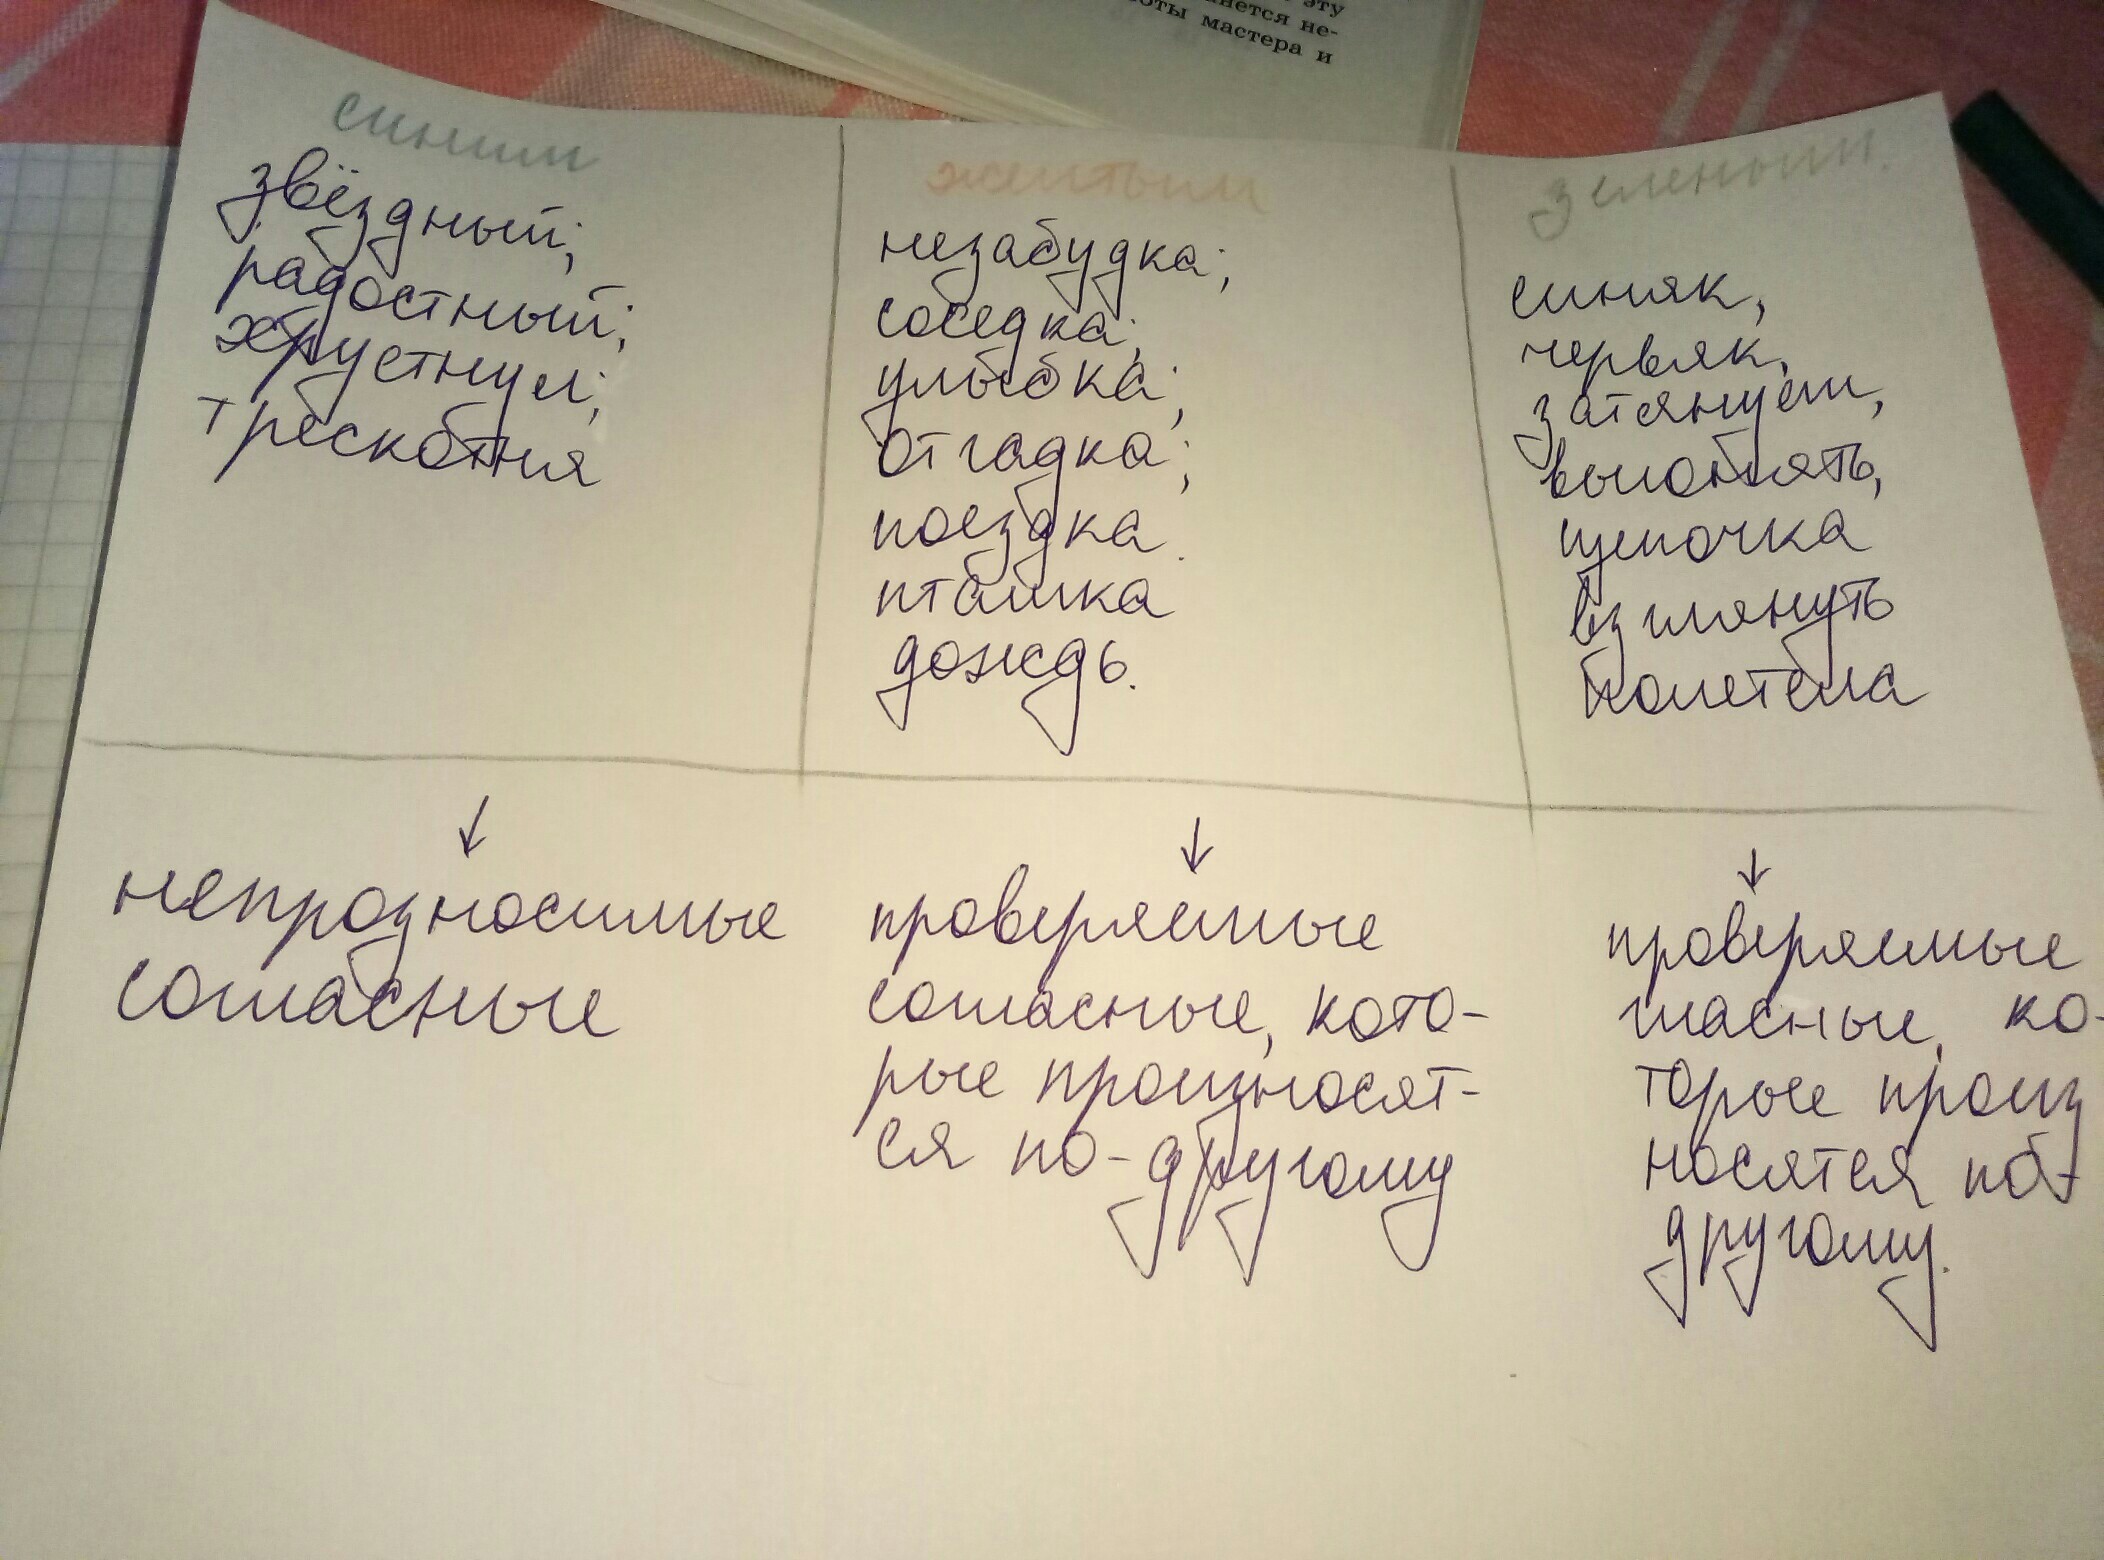 эту
нется не-
оты мастера и
синим
звёздный;
радостный;
хрустнул;
трескотня
желтым
незабудка;
соседка;
улыбка;
отгадка;
поездка.
пташка
дождь.
зеленым.
синяк,
червяк,
затянуем,
выполнять,
щепочка
взглянуть
полетела
↓
непрозносимые
согласные
↓
проверяемые
согласные, кото-
рые произносят-
ся по-другому
↓
проверяемые
гласные, ко-
торые произ
носятся по-
другому.